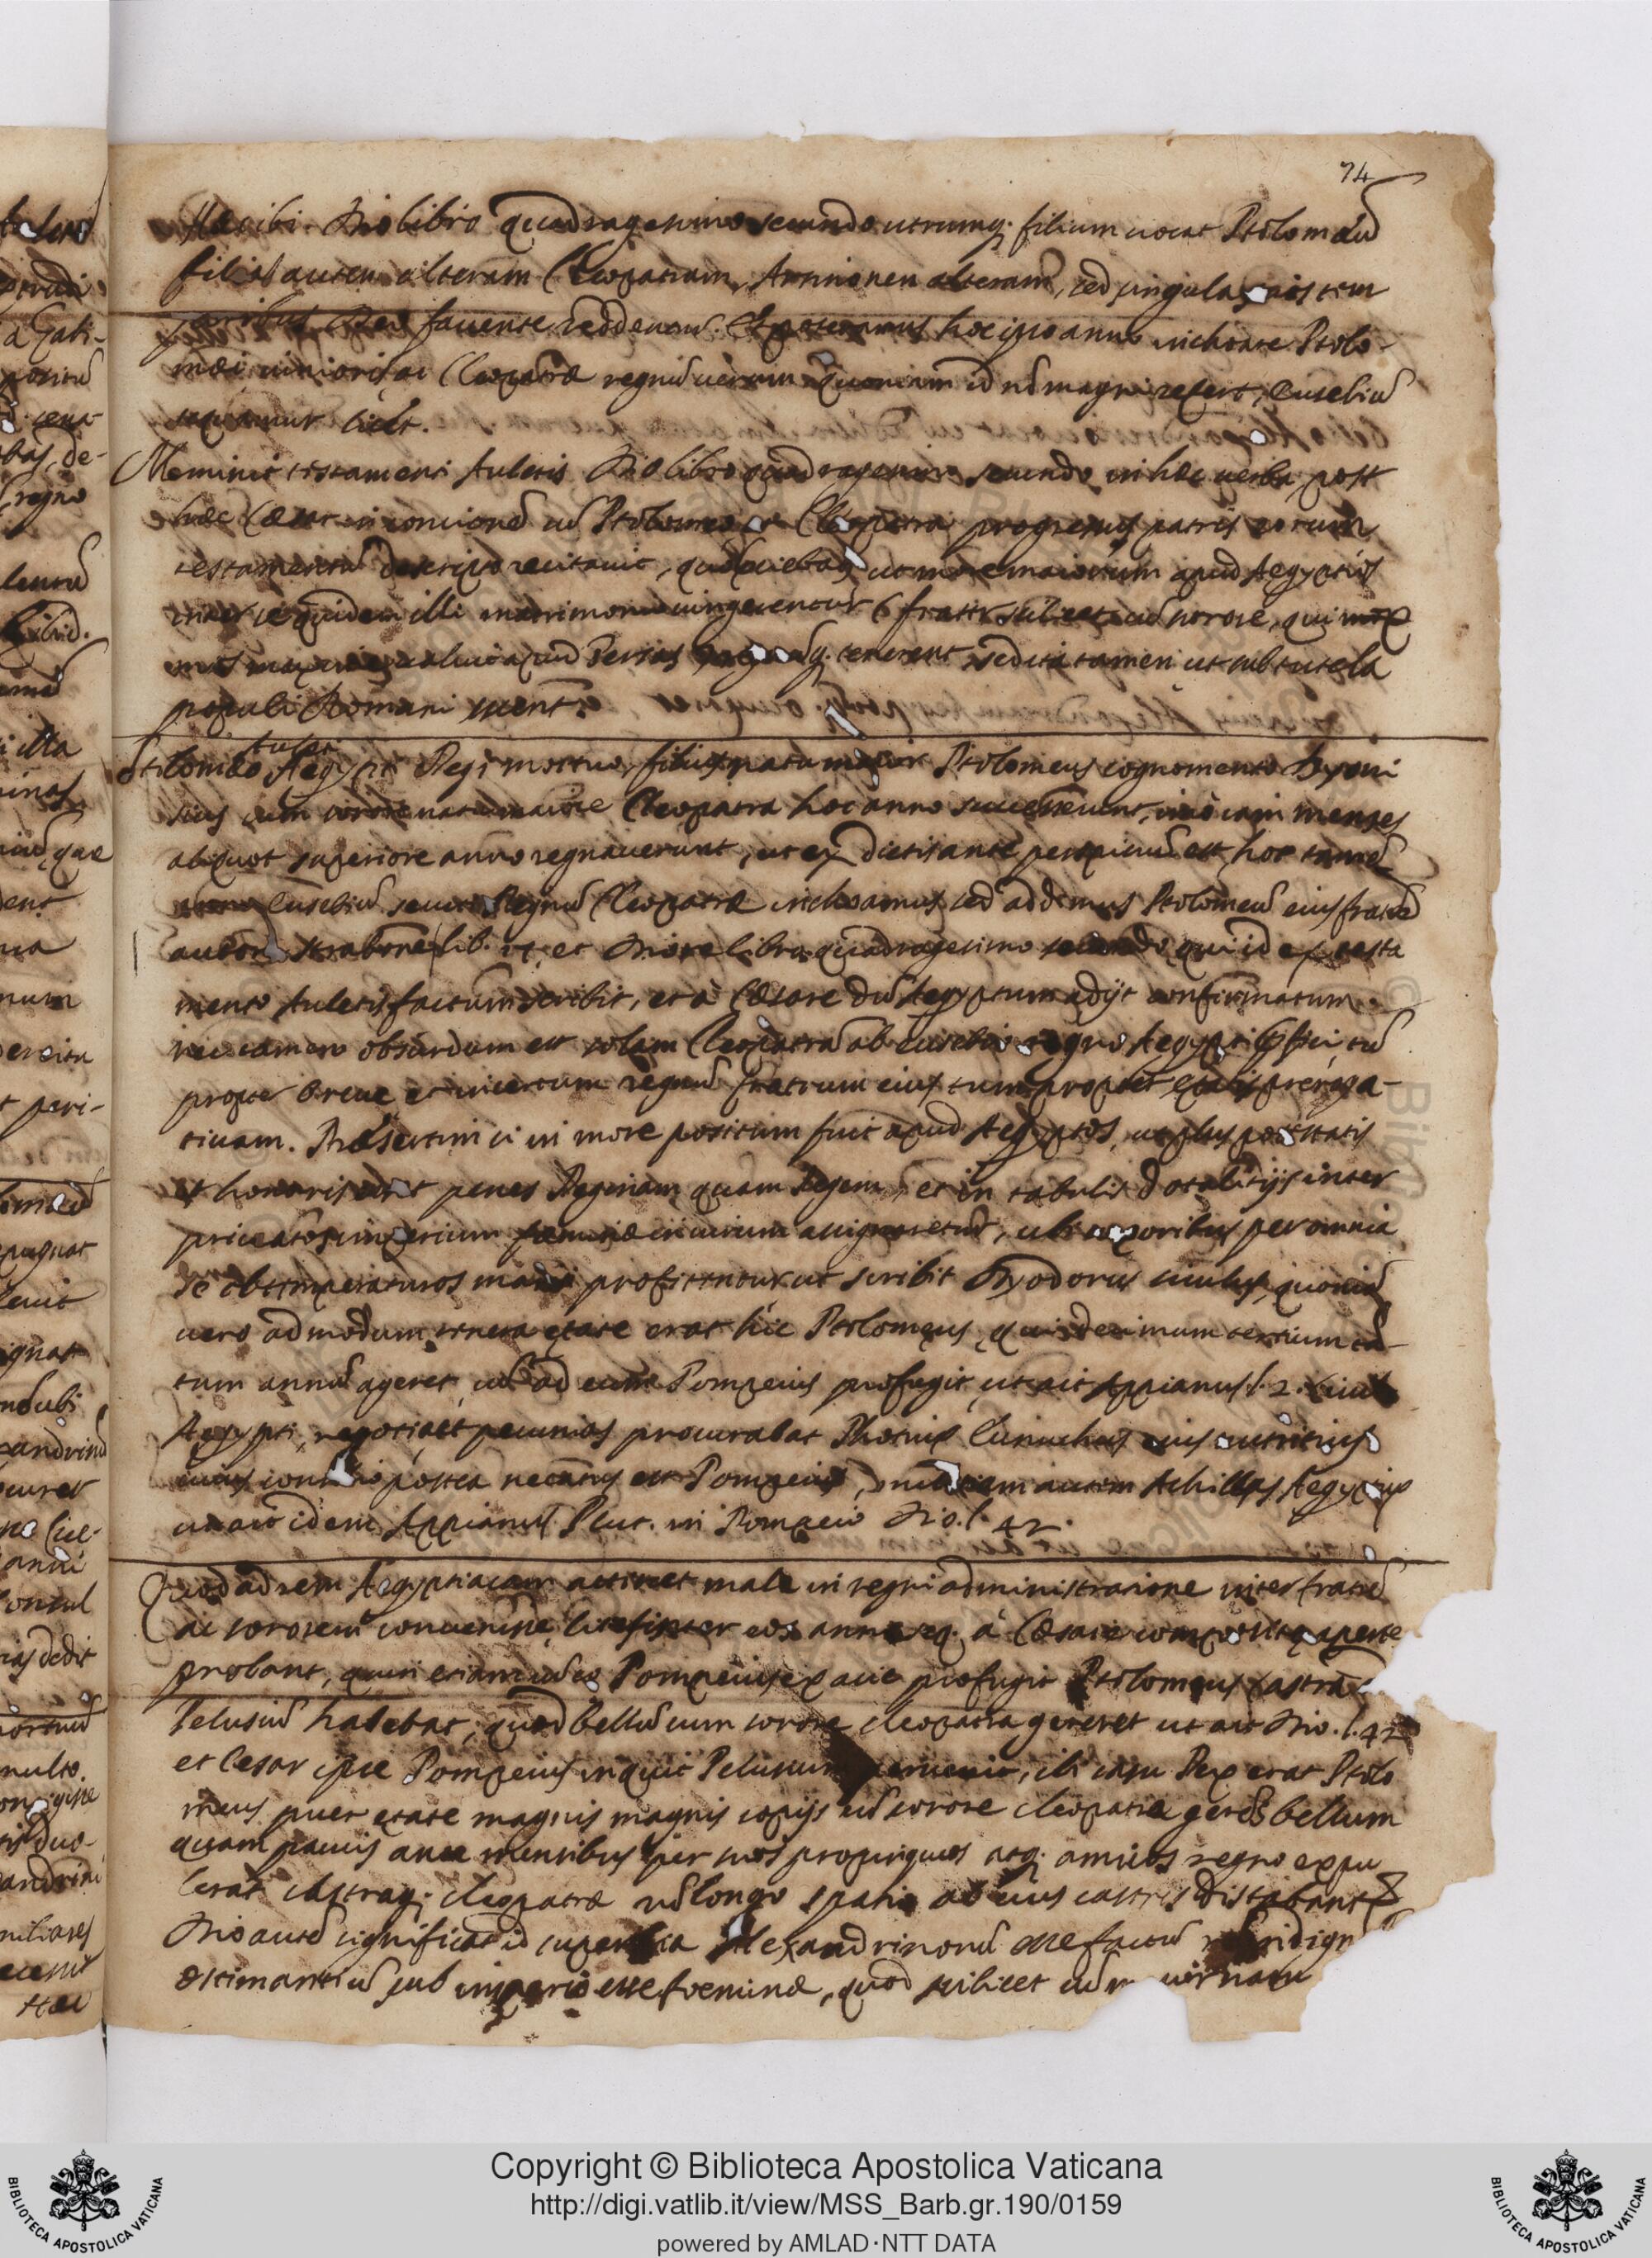 74
ibi. Dio libro quadragesimo secundo utrumq. filium uocat Ptolomęũ
filias autem alteram Cleopatram, Arsinoen alteram, sed singula suis tem
poribus Deo fauente reddemus. hoc ipso anno inchoare Ptolo-
męi iunioris ac Cleopatræ regnũ uerum quoniam id nõ magni refert, Eusebiũ
sequamur licet.
Meminit testamenti Auletis Dio libro quadragesimo secundo in hæc uerba post
hæc Cæsar in concionẽ cũ Ptolomeo et Cleopatra progressus patris eorum
testamentũ descriptũ recitauit, ut more maiorum apud Aegyptios
inter se quidem illi matrimonio iungerentur frater scilicet cũ sorore, qui mox
apud Persas tenerent, sed ita tamen ut sub tutela
populi Romani essent.
Auleti
Ptolomęo Aegypti Regi mortuo, filius natu maior Ptolomeus cognomento Dyoni
sius cum sorore natu maiore Cleopatra hoc anno successerunt, imò iam menses
aliquot superiore anno regnauerunt, ut ex dictis ante perspicuũ est, hoc tamẽ
anno Eusebiũ secuti Regnũ Cleopatræ inchoamus, sed addimus Ptolomeũ eius fratrẽ
autore Strabone lib. 17. et Dione libro quadragesimo secundo, qui id ex testa
mento Auletis factum scribit, et à Cæsare dũ Aegyptum adijt confirmatum.
nec tamen absurdum est solam Cleopatrã ab Eusebio regno Aegypti cũ
propter breue et incertum regnũ fratrum eius tum propter ętatis preroga-
tiuam. Præsertim si in more positum fuit apud Aegyptios, ut plus potestatis
et honoris esset penes Reginam quam Regem, et in tabulis dotalitijs inter
priuatos imperium fœminæ in uirum assignaretur, ubi uxoribus per omnia
se obtemperaturos mariti profitentur ut scribit Dyodorus siculus, quoniã
uero admodum tenera ętate erat hic Ptolomęus, qui decimum tertium tã-
tum annũ ageret, cũ ad eum Pompeius profugit, ut ait Appianus l. 2. ciuil
Aegypti, negotia et pecunias procurabat Photius Eunuchus eius nutritius
cuius consilio postea necatus est Pompeius, militiam autem Achillas Aegyptius
ut ait idem Appianus. Plut. in Pompeio Dio. l. 42.
Quod ad rem Aegyptiacam attinet male in regni administratione inter fratrẽ
ac sororem conuenisse, lites inter eos anno seq. à Cæsare compositę aperte
probant, quin etiam cũ eo Pompeius ex acie profugit Ptolomęus castra
Pelusiũ habebat, quod bellũ cum sorore cleopatra gereret ut ait Dio. l. 42
et Cesar ipse Pompeius inquit Pelusium peruenit, ibi casu Rex erat Ptolo
meus puer ętate magnis magnis copijs cũ sorore cleopatra gerẽs bellum
quam paucis ante mensibus per suos propinquos atq. amicos regno expu
lerat castraq. cleopatræ nõ longo spatio ab eius castris distabant
Dio autẽ significat id superbia Alexandrinorũ esse factũ
æstimantiũ sub imperio esse fœminæ, quod scilicet cũ
Copyright © Biblioteca Apostolica Vaticana
http://digi.vatlib.it/view/MSS_Barb.gr.190/0159
powered by AMLAD·NTT DATA
BIBLIOTECA APOSTOLICA VATICANA
BIBLIOTECA APOSTOLICA VATICANA